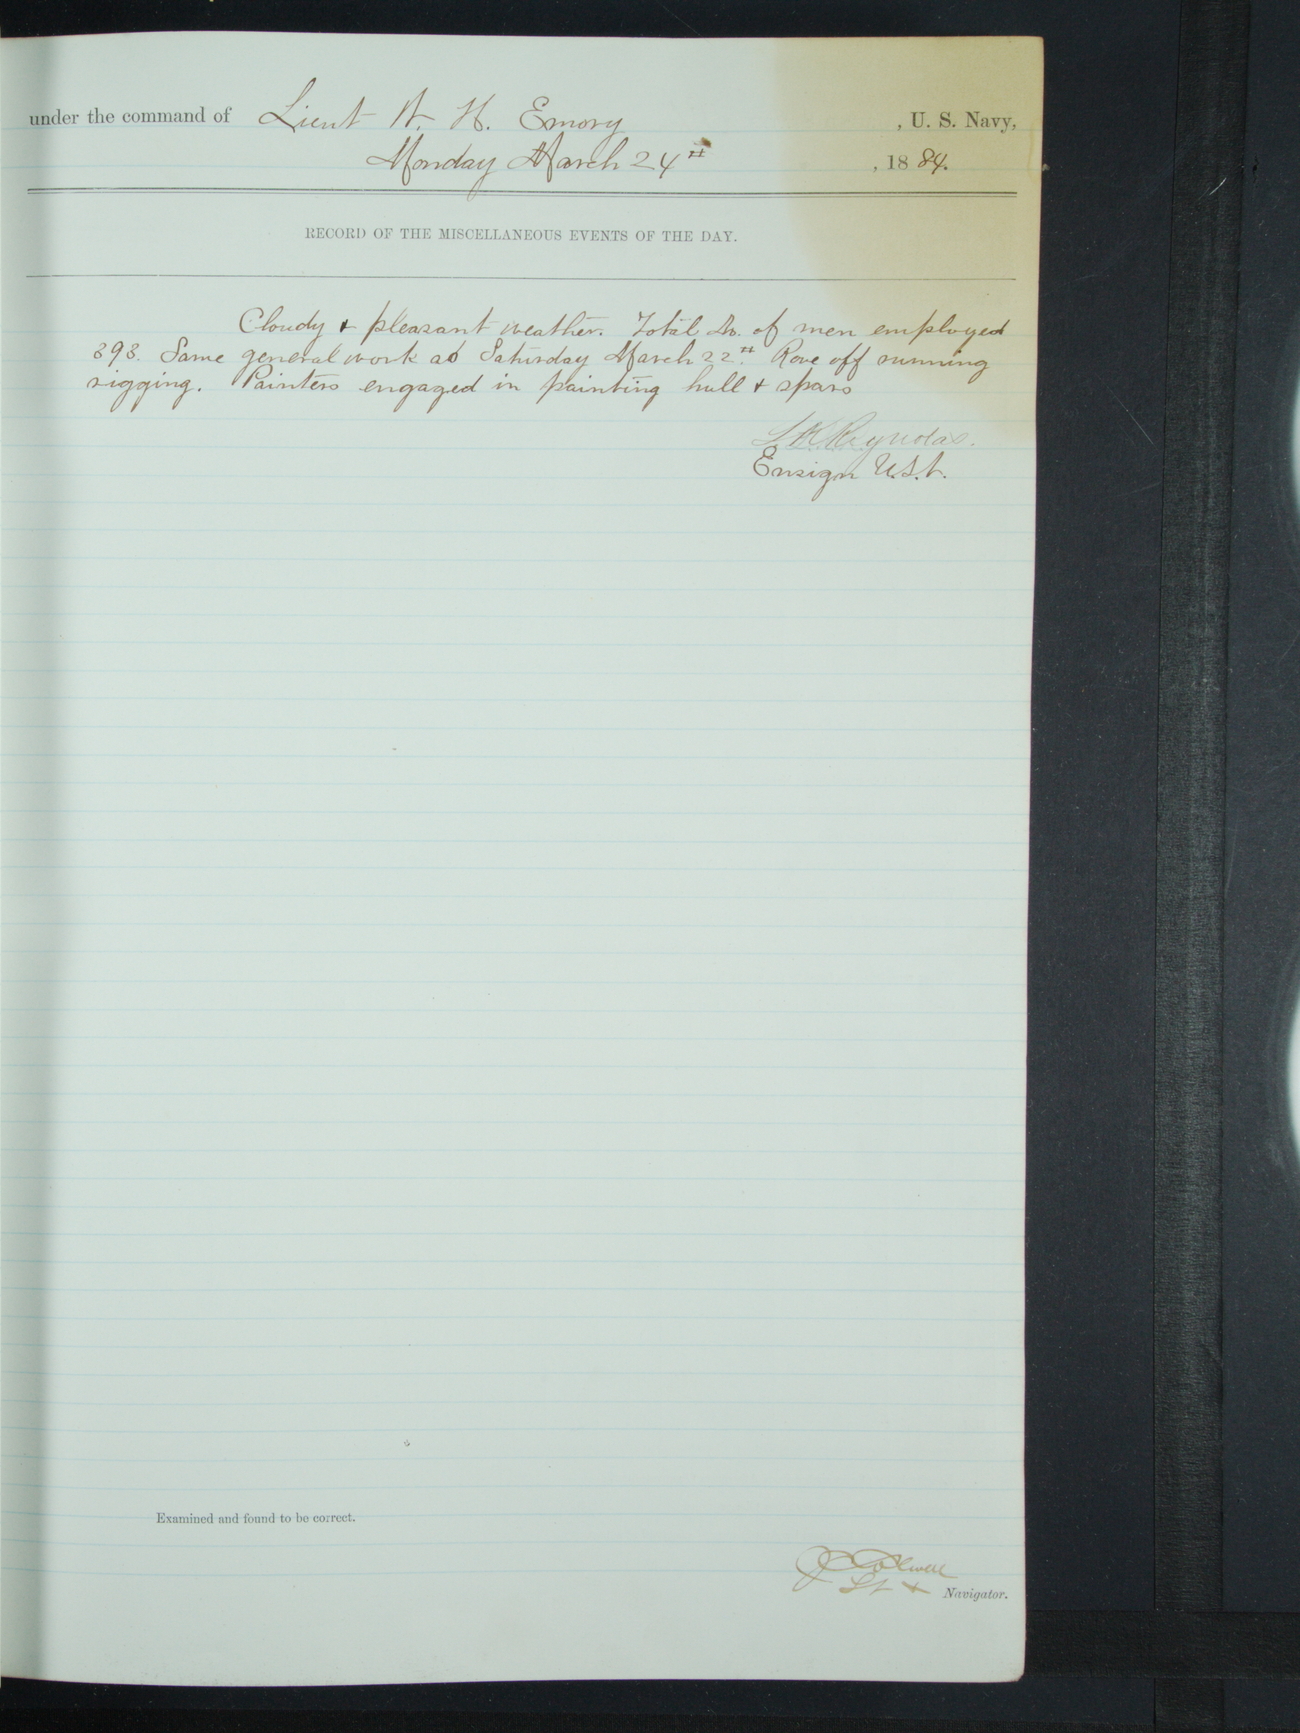 under the command of Lieut W. H. Emory, U. S. Navy,
Monday March 24th, 1884.
RECORD OF THE MISCELLANEOUS EVENTS OF THE DAY.
Cloudy & pleasant weather. Total No. of men employed
393. Same general work as Saturday March 22nd. Rove off running
rigging. Painters engaged in painting hull & spars
L K Reynolds.
Ensign U.S.N.
Examined and found to be correct.
J C Colwell
Lt & Navigator.